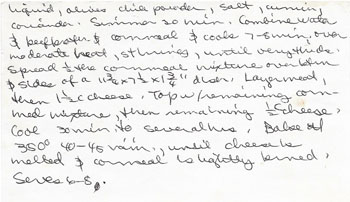 liquid, olives chili powder, salt, cumin,
coriander. Simmer 20 min. Combine water
& cornmeal & cook 7-8 min. over
moderate heat, stirring, until very thick.
Spread ½ the cornmeal mixture over btm
& sides of a 11¾ x 7½ x 1¾" dish. Layer meat,
then 1½ c cheese. Top w/ remaining corn-
meal mixture, then remaining ½ c cheese.
Cool 30 min. to several hrs. Bake
350° 40-45 min., until cheese is
melted & cornmeal is lightly
Serves 6-8.